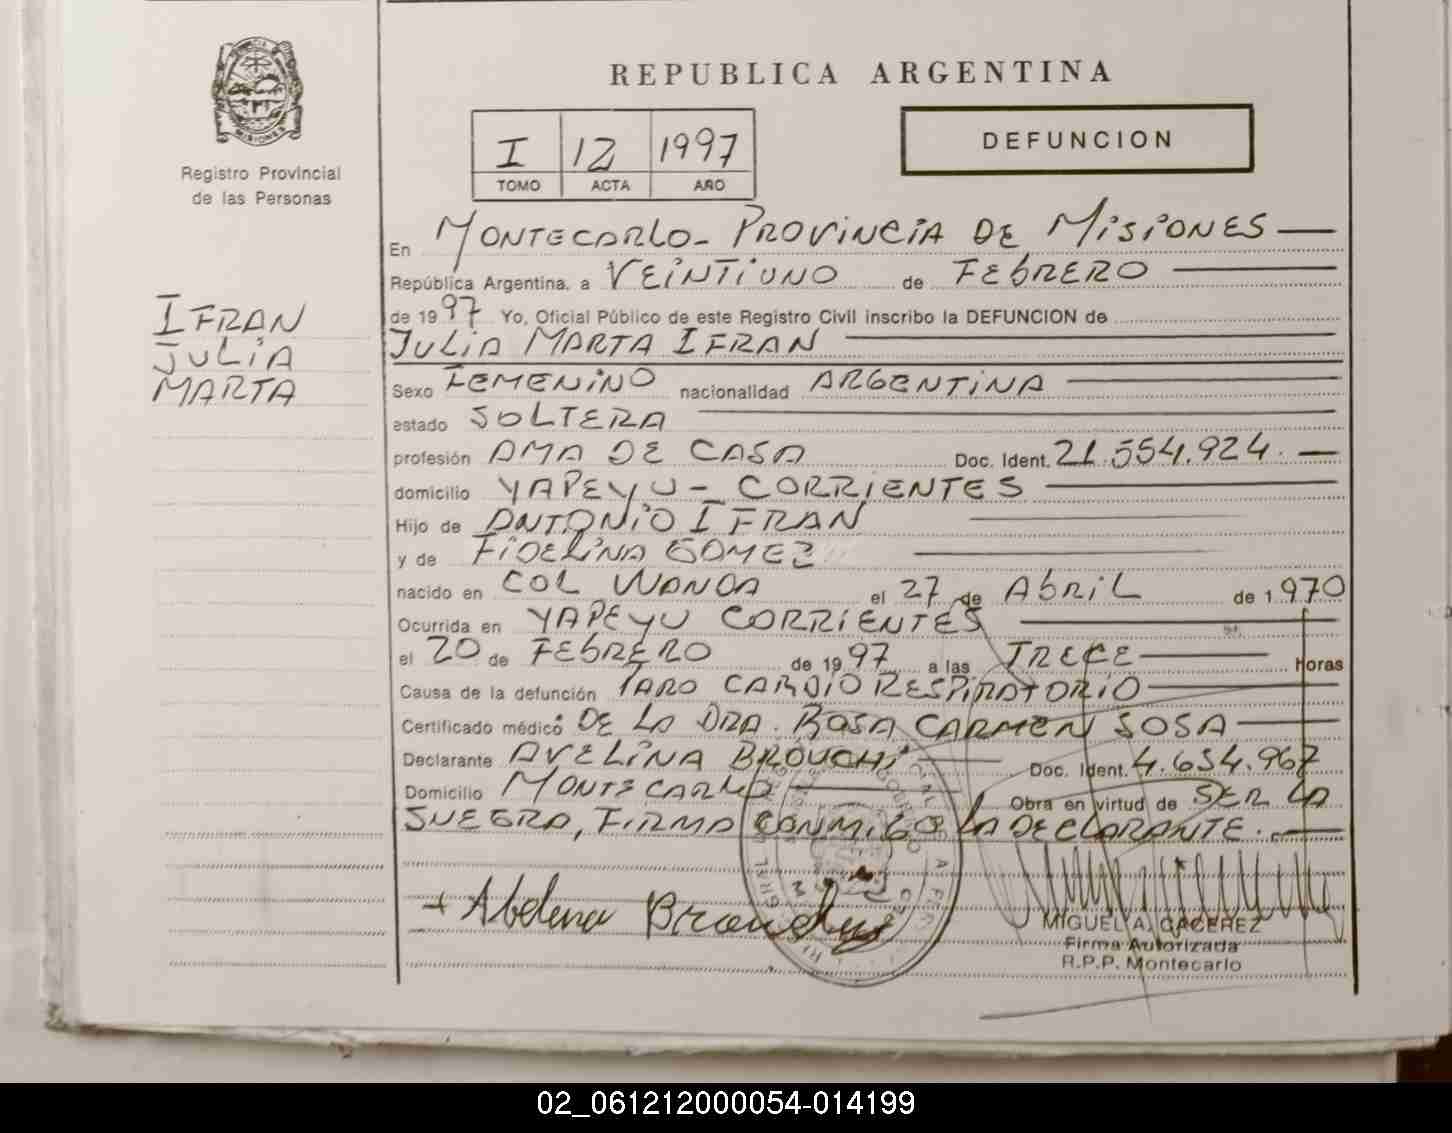 REPUBLICA ARGENTINA
I 12 1997
TOMO ACTA AÑO
DEFUNCION
MISIONES
Registro Provincial
de las Personas
IFRAN
JULIA
MARTA
En MONTECARLO - PROVINCIA DE MISIONES
República Argentina, a VEINTIUNO de FEBRERO
de 1997 Yo, Oficial Público de este Registro Civil inscribo la DEFUNCION de
JULIA MARTA IFRAN
Sexo FEMENINO nacionalidad ARGENTINA
estado SOLTERA
profesión AMA DE CASA Doc. Ident. 21.554.924.
domicilio YAPEYU - CORRIENTES
Hijo de ANTONIO IFRAN
y de FIDELINA GOMEZ
nacido en COL WANDA el 27 de ABRIL de 1.970
Ocurrida en YAPEYU CORRIENTES
el 20 de FEBRERO de 1997 a las TRECE horas
Causa de la defunción PARO CARDIO RESPIRATORIO
Certificado médico DE LA DRA. ROSA CARMEN SOSA
Declarante AVELINA BROUCHI Doc. Ident. 4.654.967
Domicilio MONTECARLO Obra en virtud de SER LA
SUEGRA, FIRMA CONMIGO LA DECLARANTE.
MIGUEL A. CACEREZ
Firma Autorizada
R.P.P. Montecarlo
02_061212000054-014199